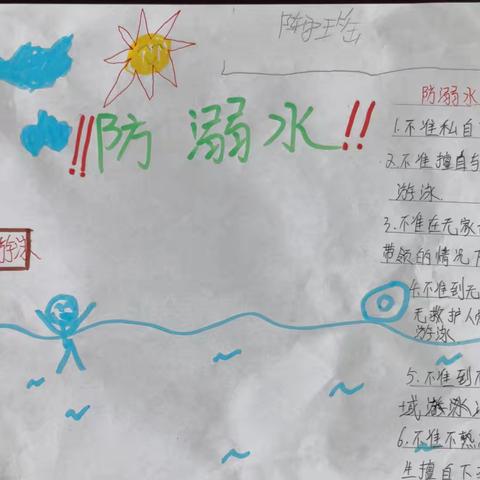 !!防溺水!!
游泳
防溺水
1.不准私自
2.不准擅自与
游泳.
3.不准在无家
带领的情况下
4.不准到无
无救护人
游泳.
5.不准到不
域游泳
6.不准不熟
生擅自下